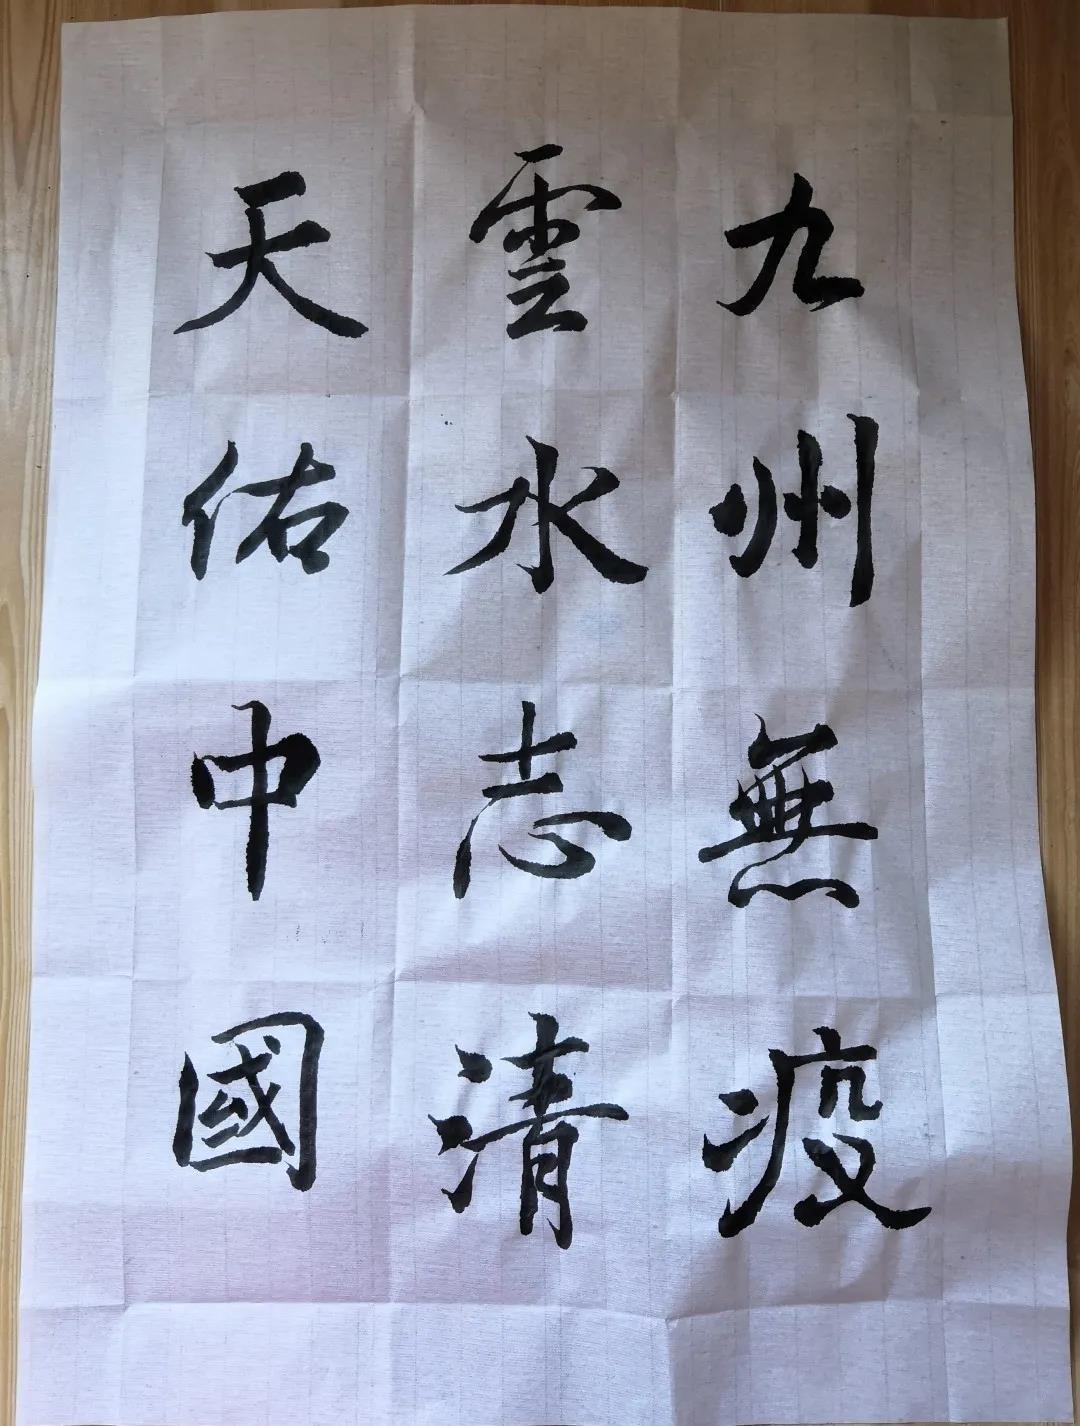 九州無疫
雲水志清
天佑中國